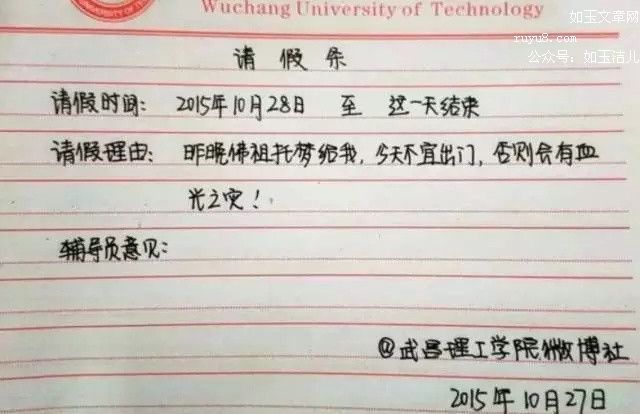 Wuchang University of Technology
如玉文章网
ruyu8.com
公众号：如玉洁儿
请假条
请假时间： 2015年10月28日 至 这一天结束
请假理由： 昨晚佛祖托梦给我，今天不宜出门，否则会有血
光之灾！
辅导员意见：
@武昌理工学院微博社
2015年10月27日